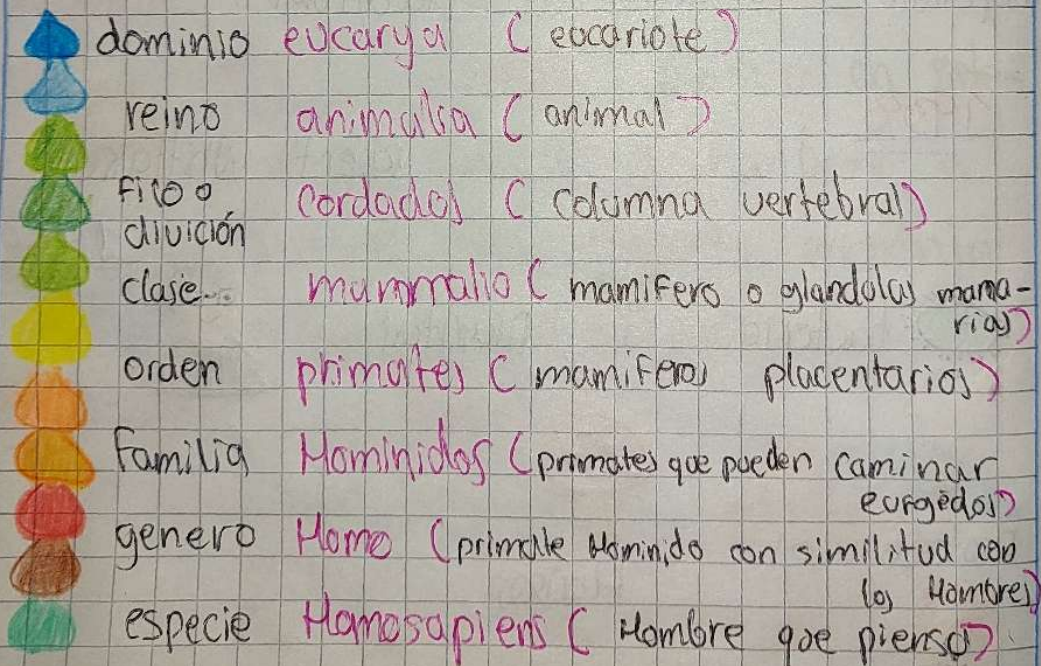 dominio eucarya ( eocariote )
reino animalia ( animal )
Filo o cordados ( columna vertebral )
divición
clase mammalia ( mamifero o glandolas mama-
rias )
orden primates ( mamiferos placentarios )
Familia Hominidos ( primates qoe poeden caminar
eurgedos )
genero Homo ( primate Hominido con similitud con
los Hombres )
especie Homosapiens ( Hombre qoe piensa )